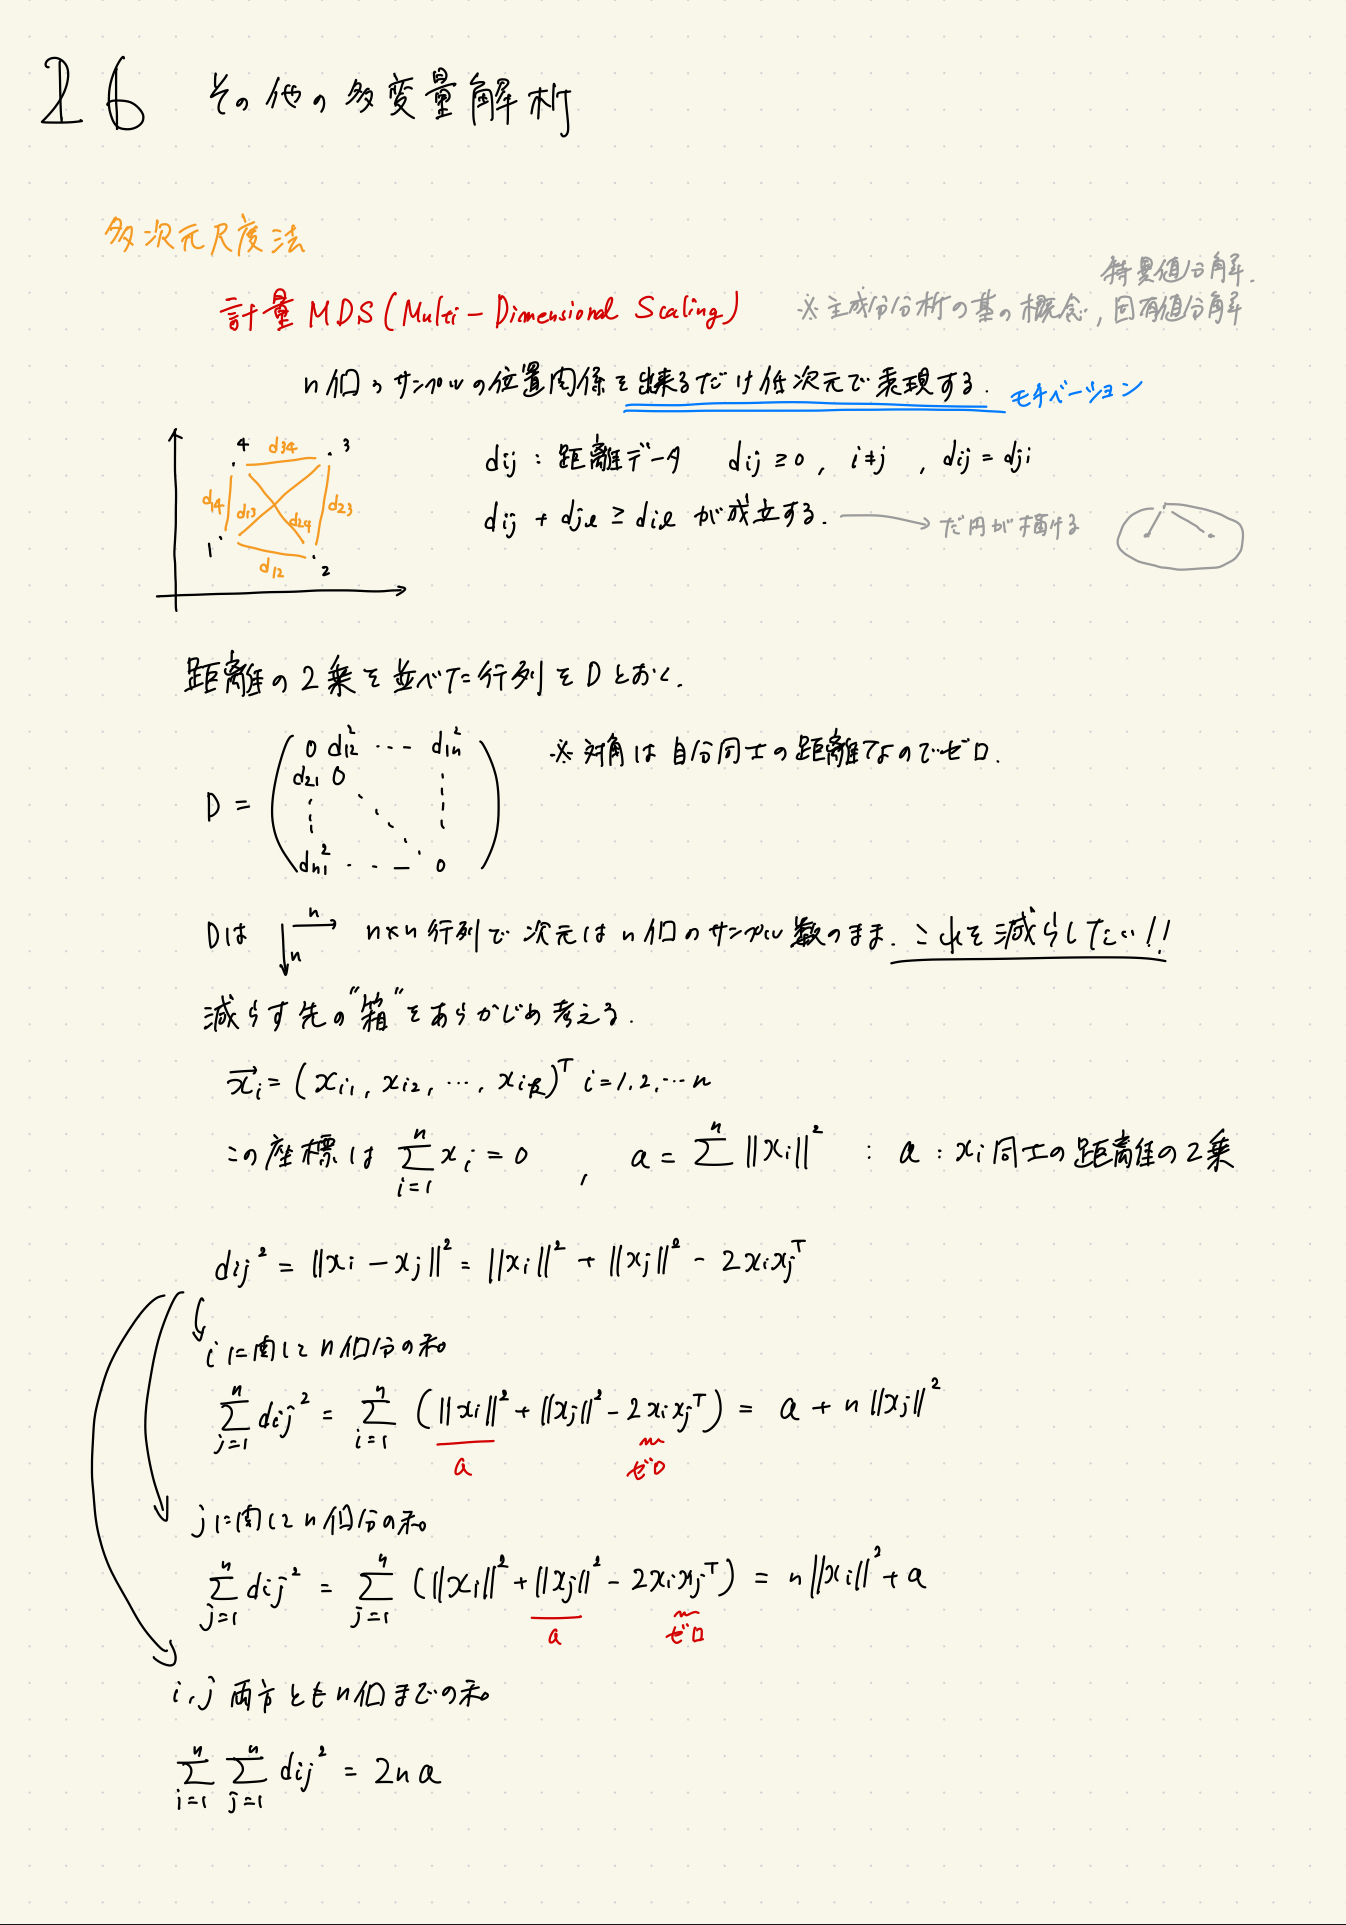 26 その他の多変量解析
多次元尺度法
特異値分解.
計量 MDS (Multi-Dimensional Scaling) ※主成分分析の基の概念, 固有値分解
n個のサンプルの位置関係を出来るだけ低次元で表現する. モチベーション
4 d34 3
d14 d13 d24 d23
1 d12 2
dij : 距離データ dij ≥ 0 , i≠j , dij = dji
dij + djl ≥ dil が成立する. → だ円が描ける
距離の2乗を並べた行列をDとおく.
D = ( 0 d12² ⋯ d1n²
d21 0
dn1² ⋯ 0 )
※対角は自分同士の距離なのでゼロ.
Dは n n n×n行列で次元はn個のサンプル数のまま. これを減らしたい!!
減らす先の"箱"をあらかじめ考える.
xi = (xi1, xi2, ⋯, xik)ᵀ i=1.2.⋯n
この座標は Σ_{i=1}^{n} xi = 0 , a = Σ^{n} ||xi||² : a : xi同士の距離の2乗
dij² = ||xi - xj||² = ||xi||² + ||xj||² - 2xixjᵀ
iに関してn個分の和
Σ_{j=1}^{n} dij² = Σ_{i=1}^{n} (||xi||² + ||xj||² - 2xixjᵀ) = a + n||xj||²
a ゼロ
jに関してn個分の和
Σ_{j=1}^{n} dij² = Σ_{j=1}^{n} (||xi||² + ||xj||² - 2xixjᵀ) = n||xi||² + a
a ゼロ
i,j 両方ともn個までの和
Σ_{i=1}^{n} Σ_{j=1}^{n} dij² = 2na